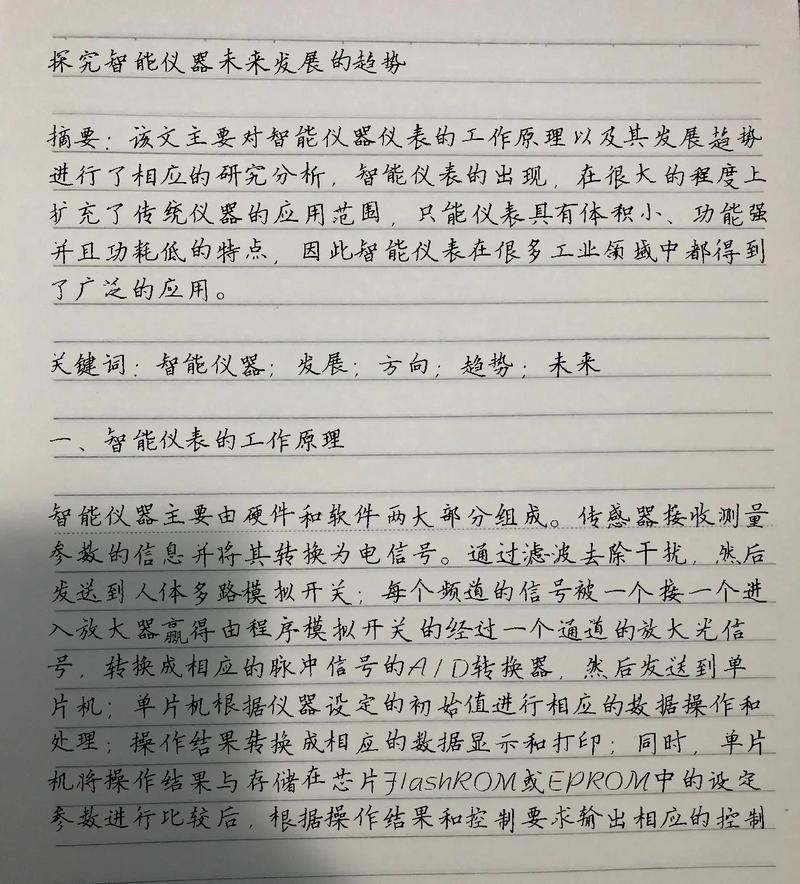 探究智能仪器未来发展的趋势
摘要：该文主要对智能仪器仪表的工作原理以及其发展趋势
进行了相应的研究分析，智能仪表的出现，在很大的程度上
扩充了传统仪器的应用范围，只能仪表具有体积小、功能强
并且功耗低的特点，因此智能仪表在很多工业领域中都得到
了广泛的应用。
关键词：智能仪器；发展；方向；趋势；未来
一、智能仪表的工作原理
智能仪器主要由硬件和软件两大部分组成。传感器接收测量
参数的信息并将其转换为电信号。通过滤波去除干扰，然后
发送到人体多路模拟开关；每个频道的信号被一个接一个进
入放大器赢得由程序模拟开关的经过一个通道的放大光信
号，转换成相应的脉冲信号的A/D转换器，然后发送到单
片机；单片机根据仪器设定的初始值进行相应的数据操作和
处理；操作结果转换成相应的数据显示和打印；同时，单片
机将操作结果与存储在芯片FlashROM或EPROM中的设定
参数进行比较后，根据操作结果和控制要求输出相应的控制